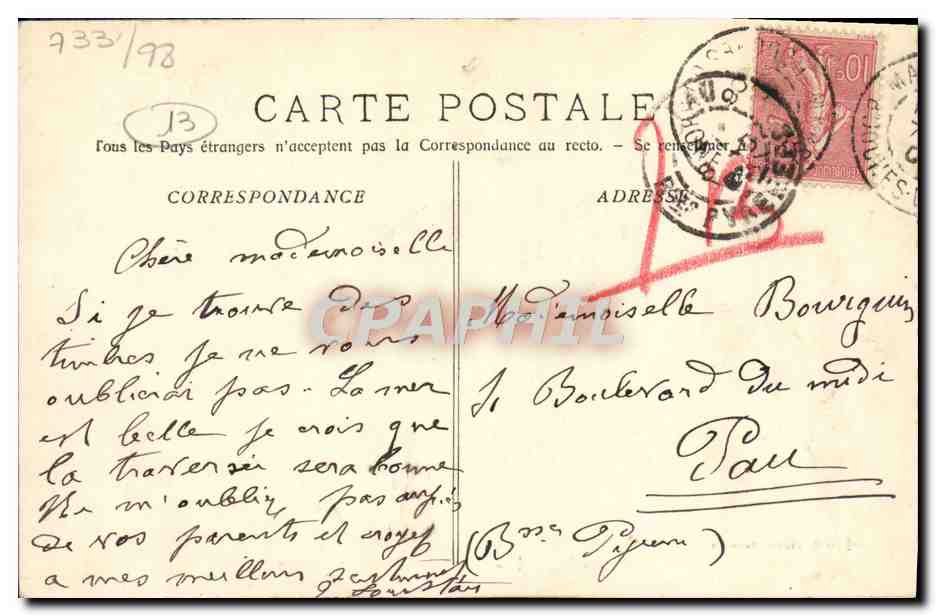 733/98
13
CARTE POSTALE
Tous les Pays étrangers n'acceptent pas la Correspondance au recto. - Se renseigner à
CORRESPONDANCE
Chère mademoiselle
Si je trouve des
timbres je ne vous
oublierai pas. La mer
est belle je crois que
la traversée sera bonne
Ne m'oubliez pas auprès
de vos parents et croyez
a mes meilleurs
ADRESSE
Mademoiselle Bourguin
Boulevard du midi
Pau
(Bsses Pyrénées)
10
CPAPHIL